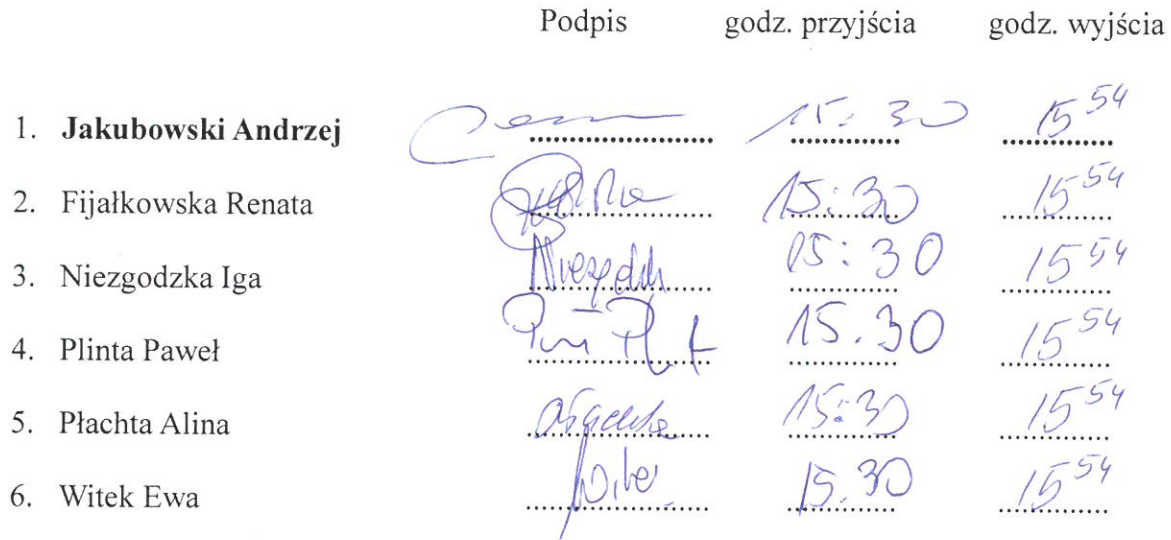 Podpis godz. przyjścia godz. wyjścia
1. Jakubowski Andrzej 15:30 15 54
2. Fijałkowska Renata 15:30 15 54
3. Niezgodzka Iga 15:30 15 54
4. Plinta Paweł 15.30 15 54
5. Płachta Alina 15:30 15 54
6. Witek Ewa 15.30 15 54